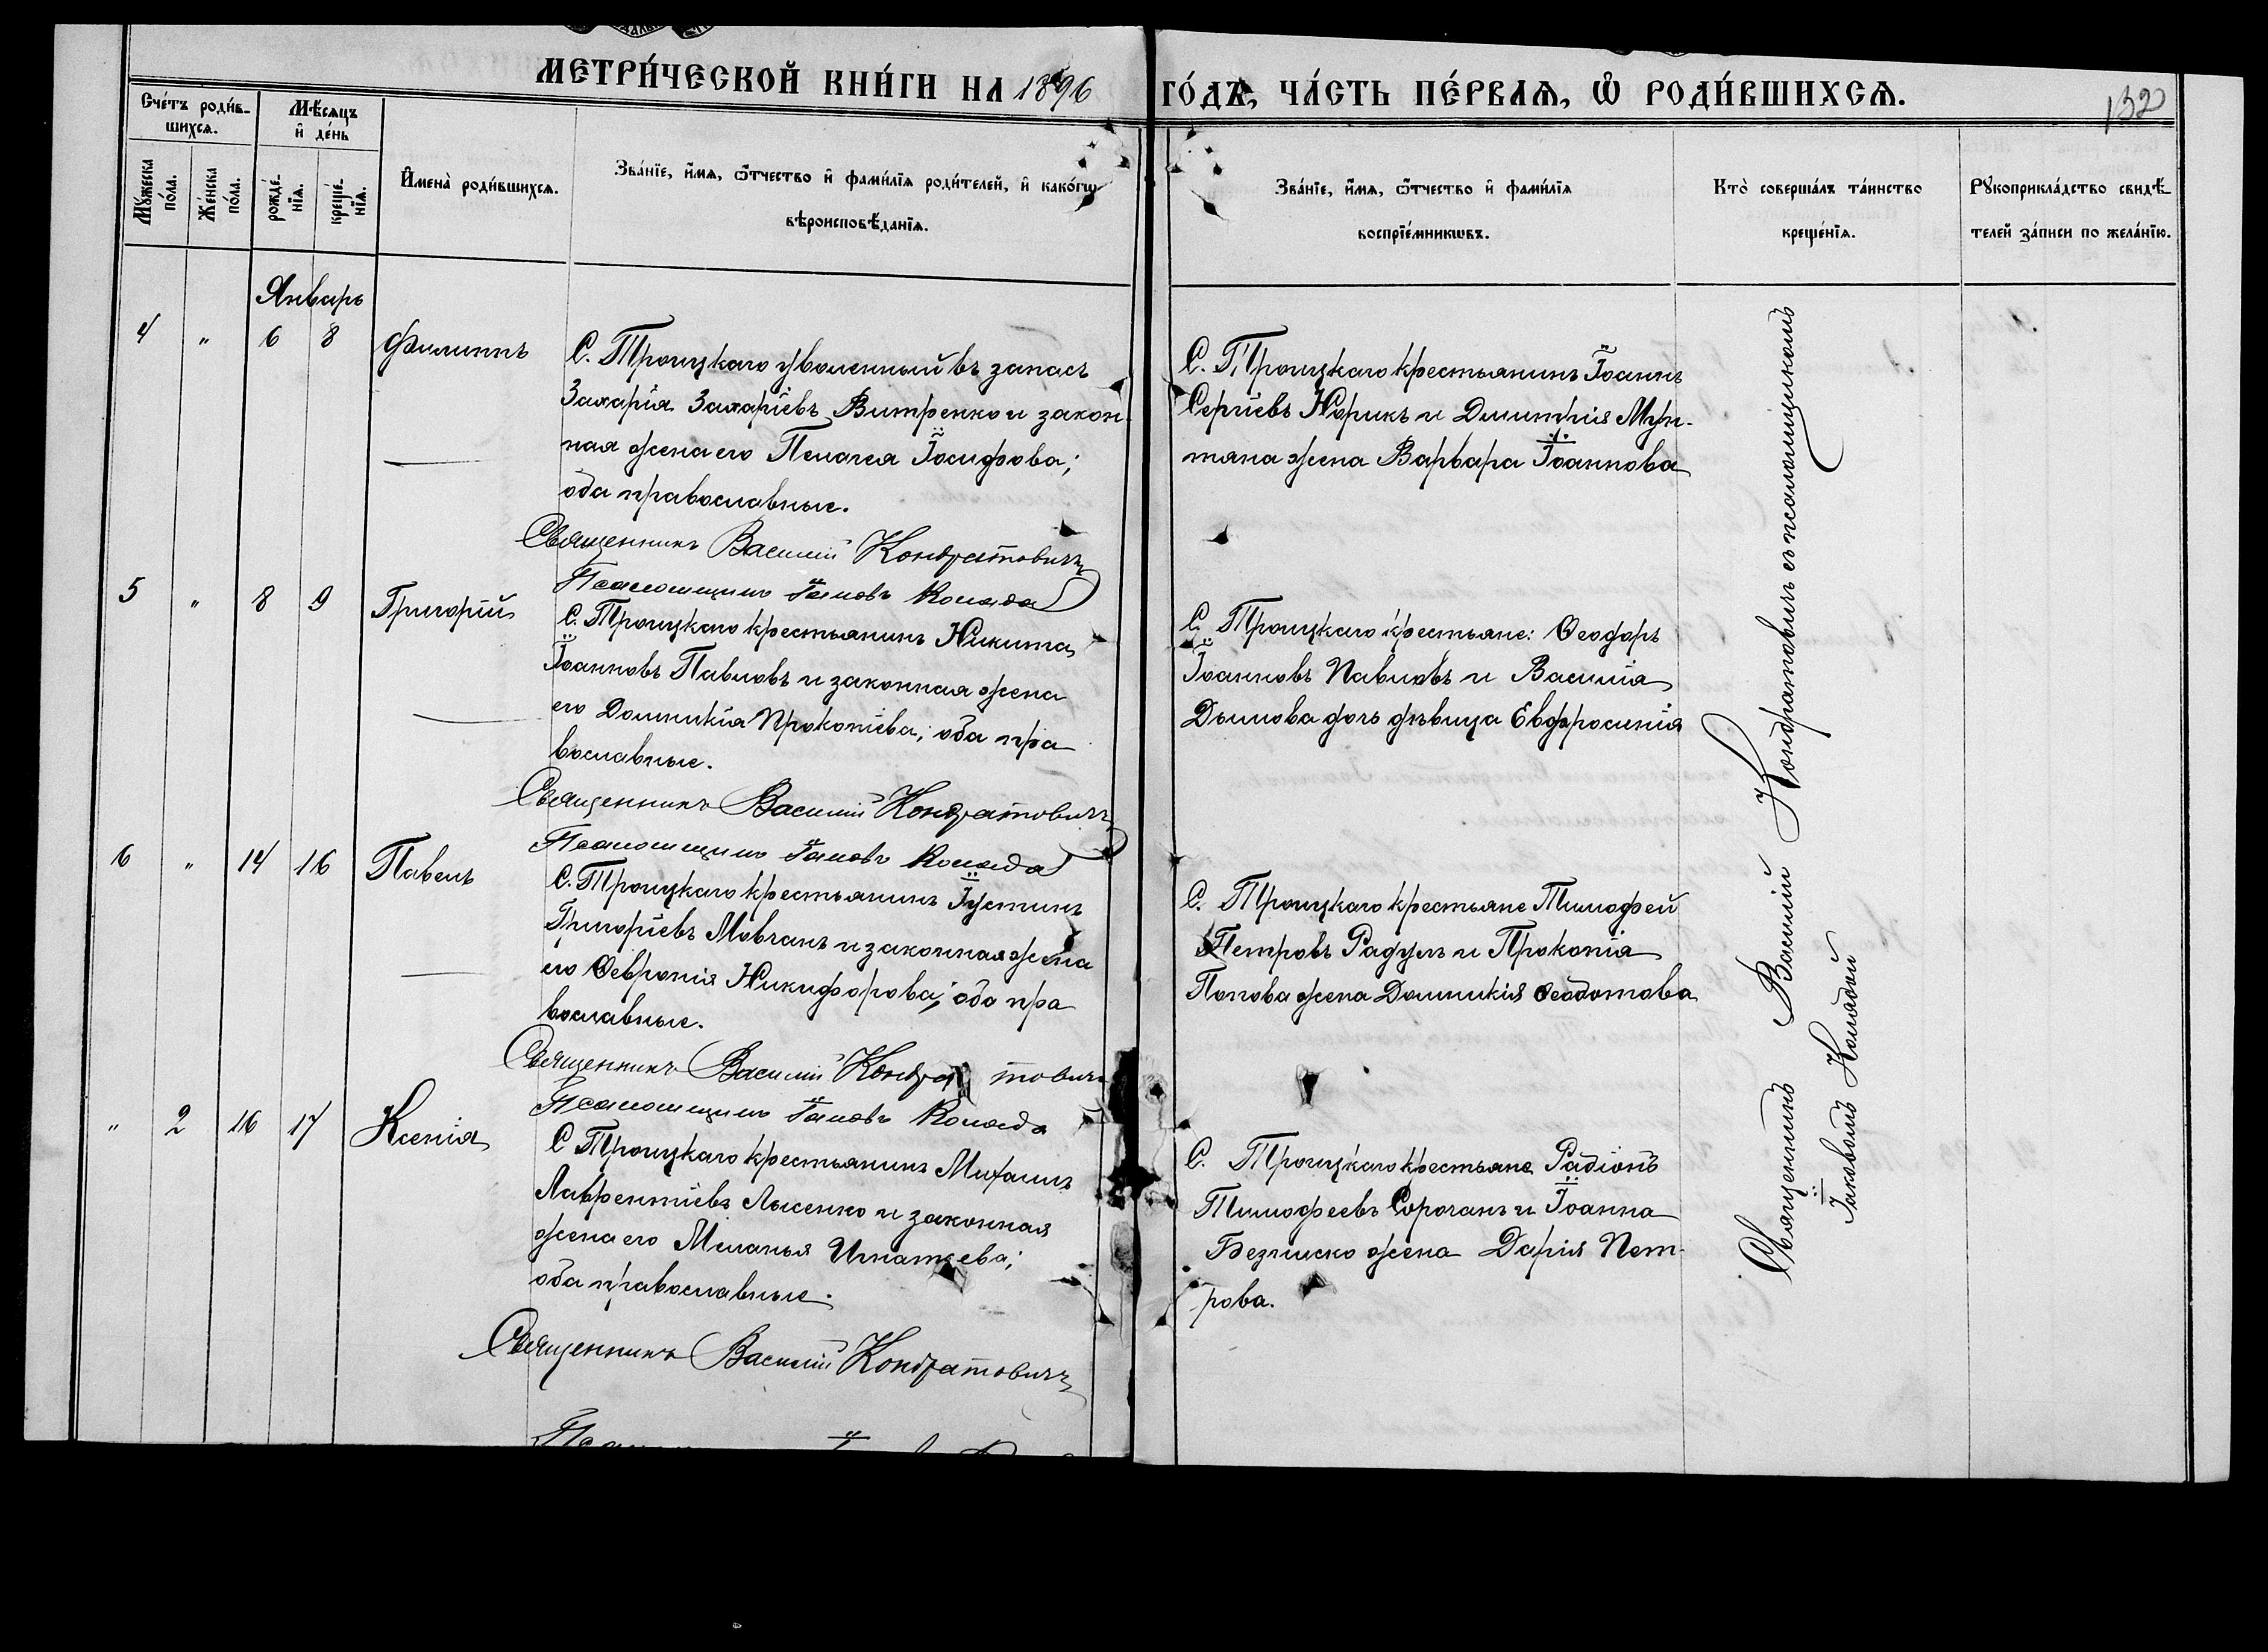 МЕТРИ́ЧЕСКОЙ КНИ́ГИ НА 1896
ГО́ДЪ, ЧА́СТЬ ПЕ́РВАѦ, Ѡ҆ РОДИ́ВШИХСѦ.
132
Сче́тъ роди́в-
шихсѧ.
Мѣ́сѧцъ
и҆ де́нь
Мꙋ́жеска
по́ла.
Же́нска
по́ла.
рожде́-
нїѧ.
креще́-
нїѧ.
И҆мена̀ роди́вшихсѧ.
Зва́нїе, и҆́мѧ, ѻ҆́тчество и҆ фами́лїѧ роди́телей, и҆ како́гѡ
вѣроисповѣ́данїѧ.
Зва́нїе, и҆́мѧ, ѻ҆́тчество и҆ фами́лїѧ
воспрїе́мникѡвъ.
Кто̀ соверша́лъ та́инство
креще́нїѧ.
Рꙋкоприкла́дство свидѣ́-
телей за́писи по жела́нїю.
Январь
4 " 6 8 Филиппъ
С. Троицкаго уволенный въ запасъ
Захарія Захаріевъ Витренко и закон-
ная жена его Пелагея Іосифова;
оба православные.
Священникъ Василій Кондратовичъ
Псаломщикъ Іаковъ Коляда
С. Троицкаго крестьянинъ Іоаннъ
Сергіевъ Норикъ и Димитрія Мун-
тяна жена Варвара Іоаннова
5 " 8 9 Григорій
С. Троицкаго крестьянинъ Никита
Іоанновъ Павловъ и законная жена
его Домникія Прокопіева; оба пра
вославные.
Священникъ Василій Кондратовичъ
Псаломщикъ Іаковъ Коляда
С. Троицкаго крестьяне: Ѳеодоръ
Іоанновъ Павловъ и Василія
Дымова дочь дѣвица Евфросинія
6 " 14 16 Павелъ
С. Троицкаго крестьянинъ Іустинъ
Григоріевъ Мовчанъ и законная жена
его Ѳевронія Никифорова; оба пра
вославные.
Священникъ Василій Кондратовичъ
Псаломщикъ Іаковъ Коляда
С. Троицкаго крестьяне Тимофей
Петровъ Радулъ и Прокопія
Попова жена Домникія Ѳеодотова
" 2 16 17 Ксенія
С Троицкаго крестьянинъ Михаилъ
Лаврентіевъ Лысенко и законная
жена его Меланья Игнатьева;
оба православные.
Священникъ Василій Кондратовичъ
С. Троицкаго крестьяне Радіонъ
Тимофеевъ Сорочанъ и Іоанна
жена Дарія Пет-
рова.
Священникъ Василій Кондратовичъ съ псаломщикомъ
Іаковомъ Колядой